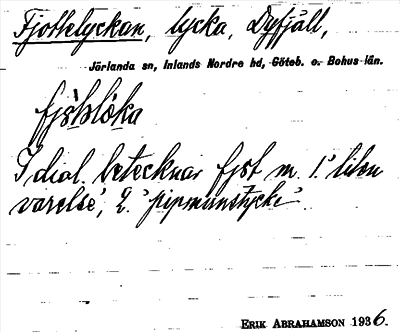 Fjotklyckan, lycka, Dyfjäll,
Jörlanda sn, Inlands Nordre hd, Göteb. o. Bohus län.
I dial. betecknar fjst m. 1. 'liten
varelse', 2. 'pipmunstycke'
ERIK ABRAHAMSON 1936.